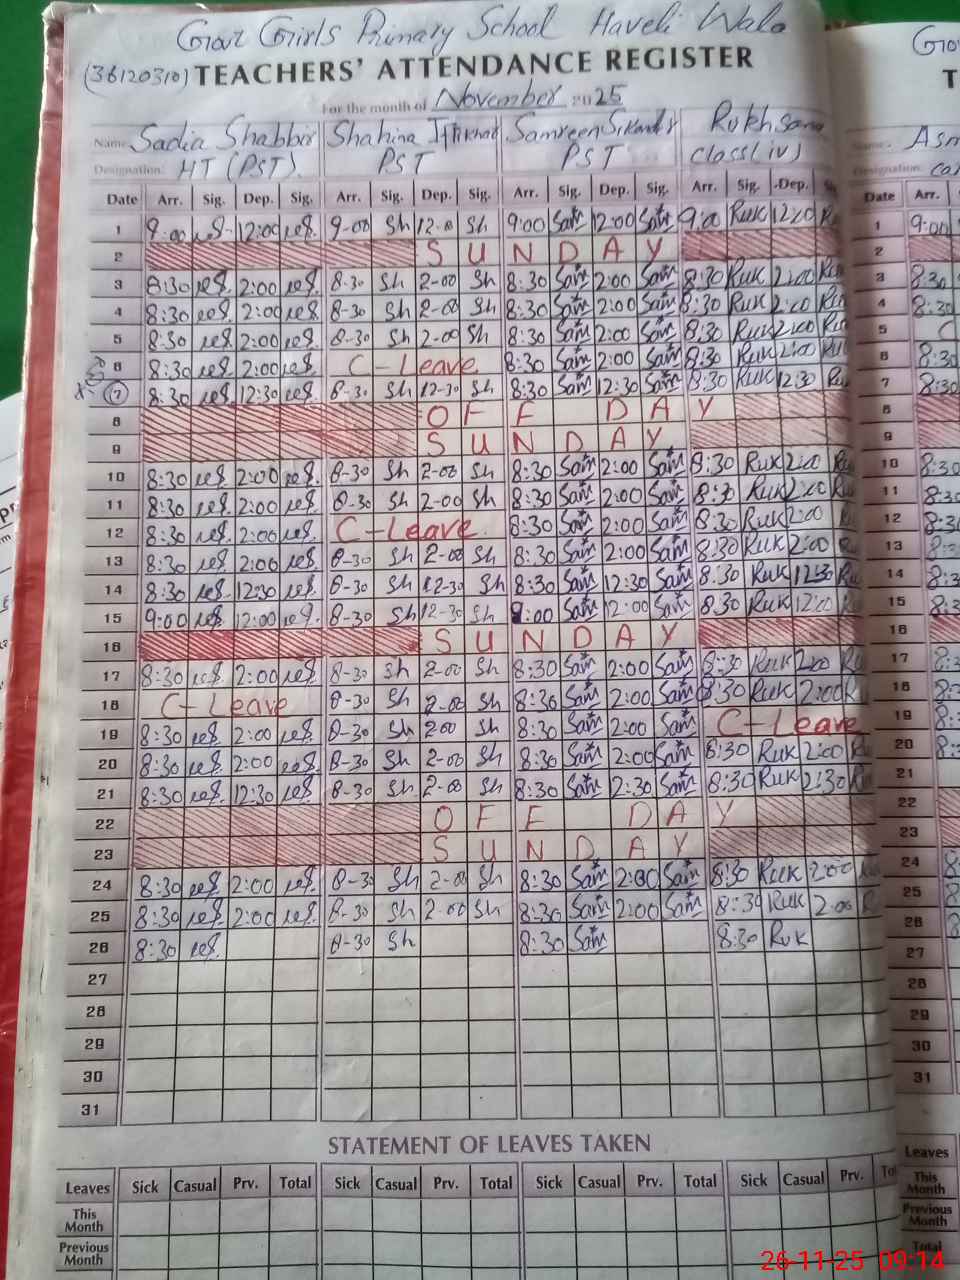 Govt Girls Primary School Haveli Wala
(36120310) TEACHERS' ATTENDANCE REGISTER
For the month of November 2025
Name Sadia Shabbir Shahina Iftikhar Samreen Sikandar Rukhsana
Designation: HT (PST). PST PST Class (iv)
Date Arr. Sig. Dep. Sig. Arr. Sig. Dep. Sig. Arr. Sig. Dep. Sig. Arr. Sig. Dep.
1 9:00 12:00 9-00 Sh 12-00 Sh 9:00 Sam 12:00 Sam 9:00 Ruk 12:00
2 SUNDAY
3 8:30 2:00 8-30 Sh 2-00 Sh 8:30 Sam 2:00 Sam 8:30 Ruk 2:00
4 8:30 2:00 8-30 Sh 2-00 Sh 8:30 Sam 2:00 Sam 8:30 Ruk 2:00
5 8:30 2:00 8-30 Sh 2-00 Sh 8:30 Sam 2:00 Sam 8:30 Ruk 2:00
6 8:30 2:00 C-Leave 8:30 Sam 2:00 Sam 8:30 Ruk 2:00
7 8:30 12:30 8-30 Sh 12-30 Sh 8:30 Sam 12:30 Sam 8:30 Ruk 12:30
8 OFF DAY
9 SUNDAY
10 8:30 2:00 8-30 Sh 2-00 Sh 8:30 Sam 2:00 Sam 8:30 Ruk 2:00
11 8:30 2:00 8-30 Sh 2-00 Sh 8:30 Sam 2:00 Sam 8:30 Ruk 2:00
12 8:30 2:00 C-Leave. 8:30 Sam 2:00 Sam 8:30 Ruk 2:00
13 8:30 2:00 8-30 Sh 2-00 Sh 8:30 Sam 2:00 Sam 8:30 Ruk 2:00
14 8:30 12:30 8-30 Sh 12-30 Sh 8:30 Sam 12:30 Sam 8:30 Ruk 12:30
15 9:00 12:00 8-30 Sh 12-30 Sh 9:00 Sam 12:00 Sam 8:30 Ruk 12:00
16 SUNDAY
17 8:30 2:00 8-30 Sh 2-00 Sh 8:30 Sam 2:00 Sam 8:30 Ruk 2:00
18 C-Leave 8-30 Sh 2-00 Sh 8:30 Sam 2:00 Sam 8:30 Ruk 2:00
19 8:30 2:00 8-30 Sh 2-00 Sh 8:30 Sam 2:00 Sam C-Leave
20 8:30 2:00 8-30 Sh 2-00 Sh 8:30 Sam 2:00 Sam 8:30 Ruk 2:00
21 8:30 12:30 8-30 Sh 2-00 Sh 8:30 Sam 2:30 Sam 8:30 Ruk 2:30
22 OFF DAY
23 SUNDAY
24 8:30 2:00 8-30 Sh 2-00 Sh 8:30 Sam 2:00 Sam 8:30 Ruk 2:00
25 8:30 2:00 8-30 Sh 2-00 Sh 8:30 Sam 2:00 Sam 8:30 Ruk 2:00
26 8:30 8-30 Sh 8:30 Sam 8:30 Ruk
27
28
29
30
31
STATEMENT OF LEAVES TAKEN
Leaves Sick Casual Prv. Total Sick Casual Prv. Total Sick Casual Prv. Total Sick Casual Prv.
This Month
Previous Month
Name. Asm
Date Arr.
1 9:00
2
3 8:30
4 8:30
5 C
6 8:30
7 8:30
8
9
10 8:30
11 8:30
12
13
14
15
16
17
18
19
20
21
22
23
24
25
26
27
28
29
30
31
Leaves
This Month
Previous Month
Total
26-11-25 09:14